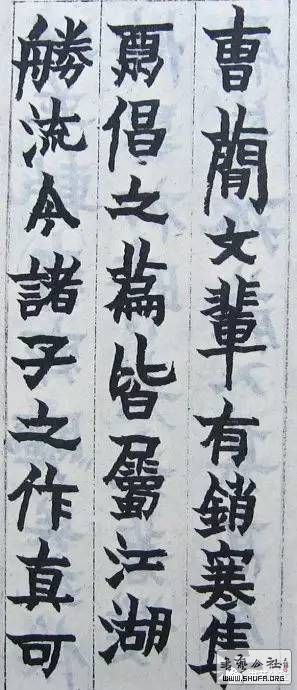 曹蕳文輩有銷寒集
倡之萹皆屬江湖
勝流今諸子之作真可
書藝公社
WWW.SHUFA.ORG